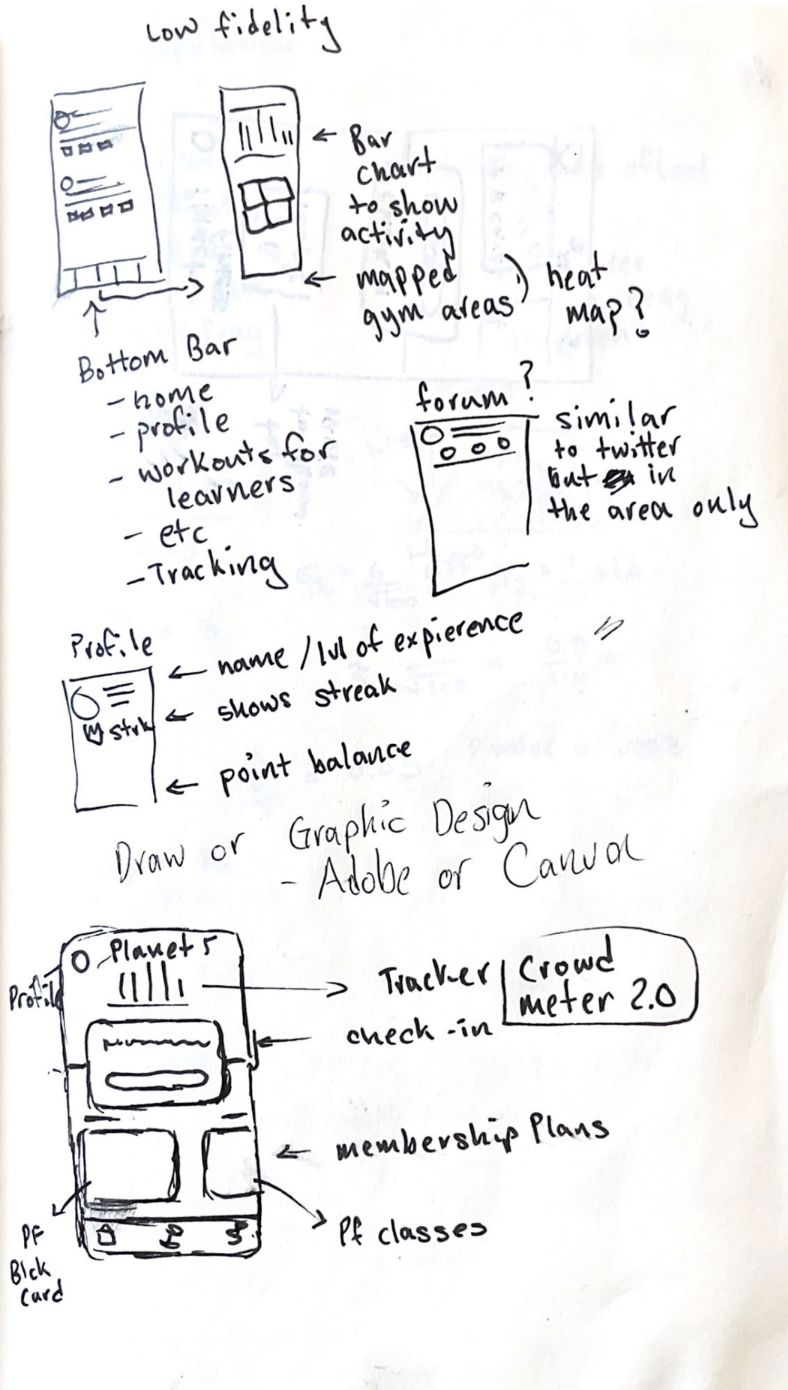 Low fidelity
Bar
chart
to show
activity
mapped
gym areas
heat
map?
Bottom Bar
- home
- profile
- workouts for
learners
- etc
- Tracking
forum?
similar
to twitter
but in
the area only
Profile
name / lvl of expierence
shows streak
strk
point balance
Draw or Graphic Design
- Adobe or Canva
Planet 5
Profile
Tracker
Crowd
meter 2.0
check-in
membership Plans
PF classes
PF
Blck
Card